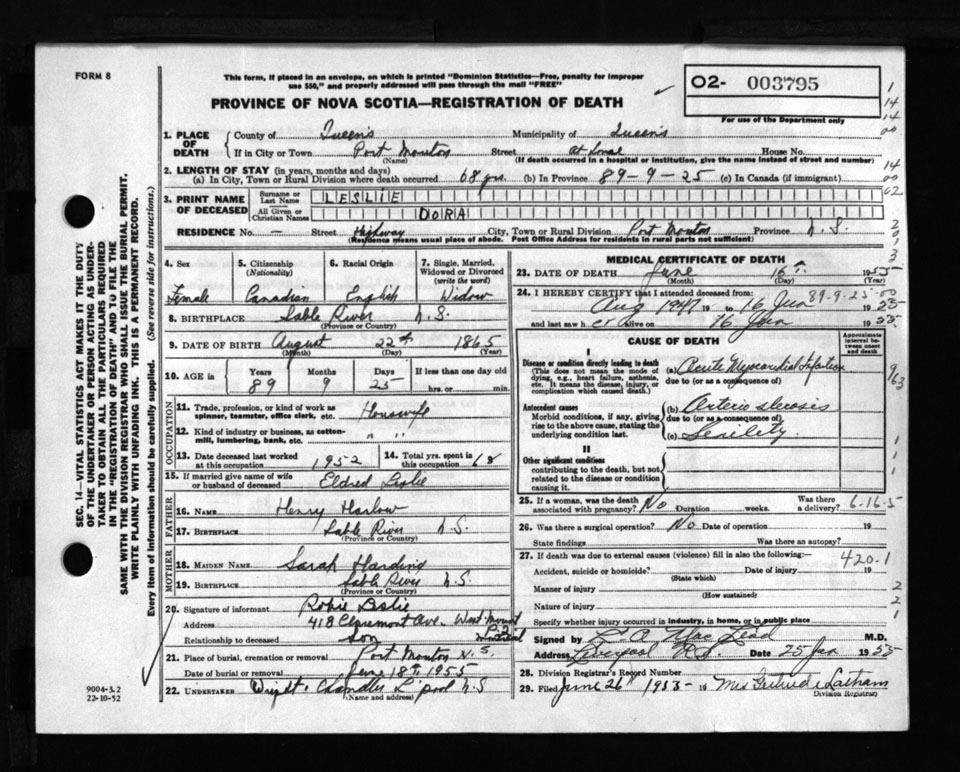 FORM 8
This form, if placed in an envelope, on which is printed "Dominion Statistics—Free, penalty for improper
use $50," and properly addressed will pass through the mail "FREE"
O2- 003795
For use of the Department only
PROVINCE OF NOVA SCOTIA—REGISTRATION OF DEATH
1. PLACE OF DEATH { County of Queen's Municipality of Queen's
If in City or Town Port Mouton Street House No.
(Name) (If death occurred in a hospital or institution, give the name instead of street and number)
2. LENGTH OF STAY (in years, months and days)
(a) In City, Town or Rural Division where death occurred 68 yrs. (b) In Province 89-9-25 (c) In Canada (if immigrant)
3. PRINT NAME OF DECEASED { Surname or Last Name LESLIE
All Given or Christian Names DORA
RESIDENCE No. — Street Highway City, Town or Rural Division Port Mouton Province N.S.
(Residence means usual place of abode. Post Office Address for residents in rural parts not sufficient)
4. Sex 5. Citizenship (Nationality) 6. Racial Origin 7. Single, Married, Widowed or Divorced (write the word)
Female Canadian English Widow
8. BIRTHPLACE Sable River N.S.
(Province or Country)
9. DATE OF BIRTH August 22nd 1865
(Month) (Day) (Year)
10. AGE in { Years Months Days If less than one day old
89 9 25 hrs. or min.
OCCUPATION
11. Trade, profession, or kind of work as spinner, teamster, office clerk, etc. Housewife
12. Kind of industry or business, as cotton-mill, lumbering, bank, etc. " "
13. Date deceased last worked at this occupation 1952 14. Total yrs. spent in this occupation 68
15. If married give name of wife or husband of deceased Eldred Leslie
FATHER
16. NAME Henry Harlow
17. BIRTHPLACE Sable River N.S.
(Province or Country)
MOTHER
18. MAIDEN NAME Sarah Harding
19. BIRTHPLACE Sable River N.S.
(Province or Country)
20. Signature of informant Robie Leslie
Address 418 Claremont Ave. West Mount P.Q. Montreal
Relationship to deceased son
21. Place of burial, cremation or removal Port Mouton N.S.
Date of burial or removal June 18th 1955
22. UNDERTAKER Wright Chandler L'pool N.S
(Name and address)
MEDICAL CERTIFICATE OF DEATH
23. DATE OF DEATH June 16th 1955
(Month) (Day) (Year)
24. I HEREBY CERTIFY that I attended deceased from: 89-9-25-00
Aug 1947 19 to 16 Jun 1955
and last saw h er alive on 16 Jun 1955.
CAUSE OF DEATH
Approximate interval between onset and death
I
Disease or condition directly leading to death
(This does not mean the mode of dying, e.g., heart failure, asthenia, etc. It means the disease, injury, or complication which caused death.)
(a) Acute Myocardial Infarction
due to (or as a consequence of)
Antecedent causes
Morbid conditions, if any, giving rise to the above cause, stating the underlying condition last.
(b) Arterio sclerosis
due to (or as a consequence of)
(c) Senility.
II
Other significant conditions
contributing to the death, but not related to the disease or condition causing it.
25. If a woman, was the death associated with pregnancy? No Duration weeks. Was there a delivery?
6-16-5
26. Was there a surgical operation? No Date of operation 19
State findings Was there an autopsy?
27. If death was due to external causes (violence) fill in also the following:—
420.1
Accident, suicide or homicide? Date of injury 19
(State which)
Manner of injury
(How sustained)
Nature of injury
Specify whether injury occurred in industry, in home, or in public place
Signed by Mac Lead M.D.
Address Liverpool N.S. Date 25 Jun 1955
28. Division Registrar's Record Number
29. Filed June 26th 1955 19 Mrs Gertrude Latham
Division Registrar)
SEC. 14—VITAL STATISTICS ACT MAKES IT THE DUTY
OF THE UNDERTAKER OR PERSON ACTING AS UNDER-
TAKER TO OBTAIN ALL THE PARTICULARS REQUIRED
IN THE "REGISTRATION OF DEATH" AND TO FILE THE
SAME WITH THE DIVISION REGISTRAR WHO SHALL ISSUE THE BURIAL PERMIT.
WRITE PLAINLY WITH UNFADING INK. THIS IS A PERMANENT RECORD.
Every item of information should be carefully supplied. (See reverse side for instructions.)
9004-3.2
22-10-52